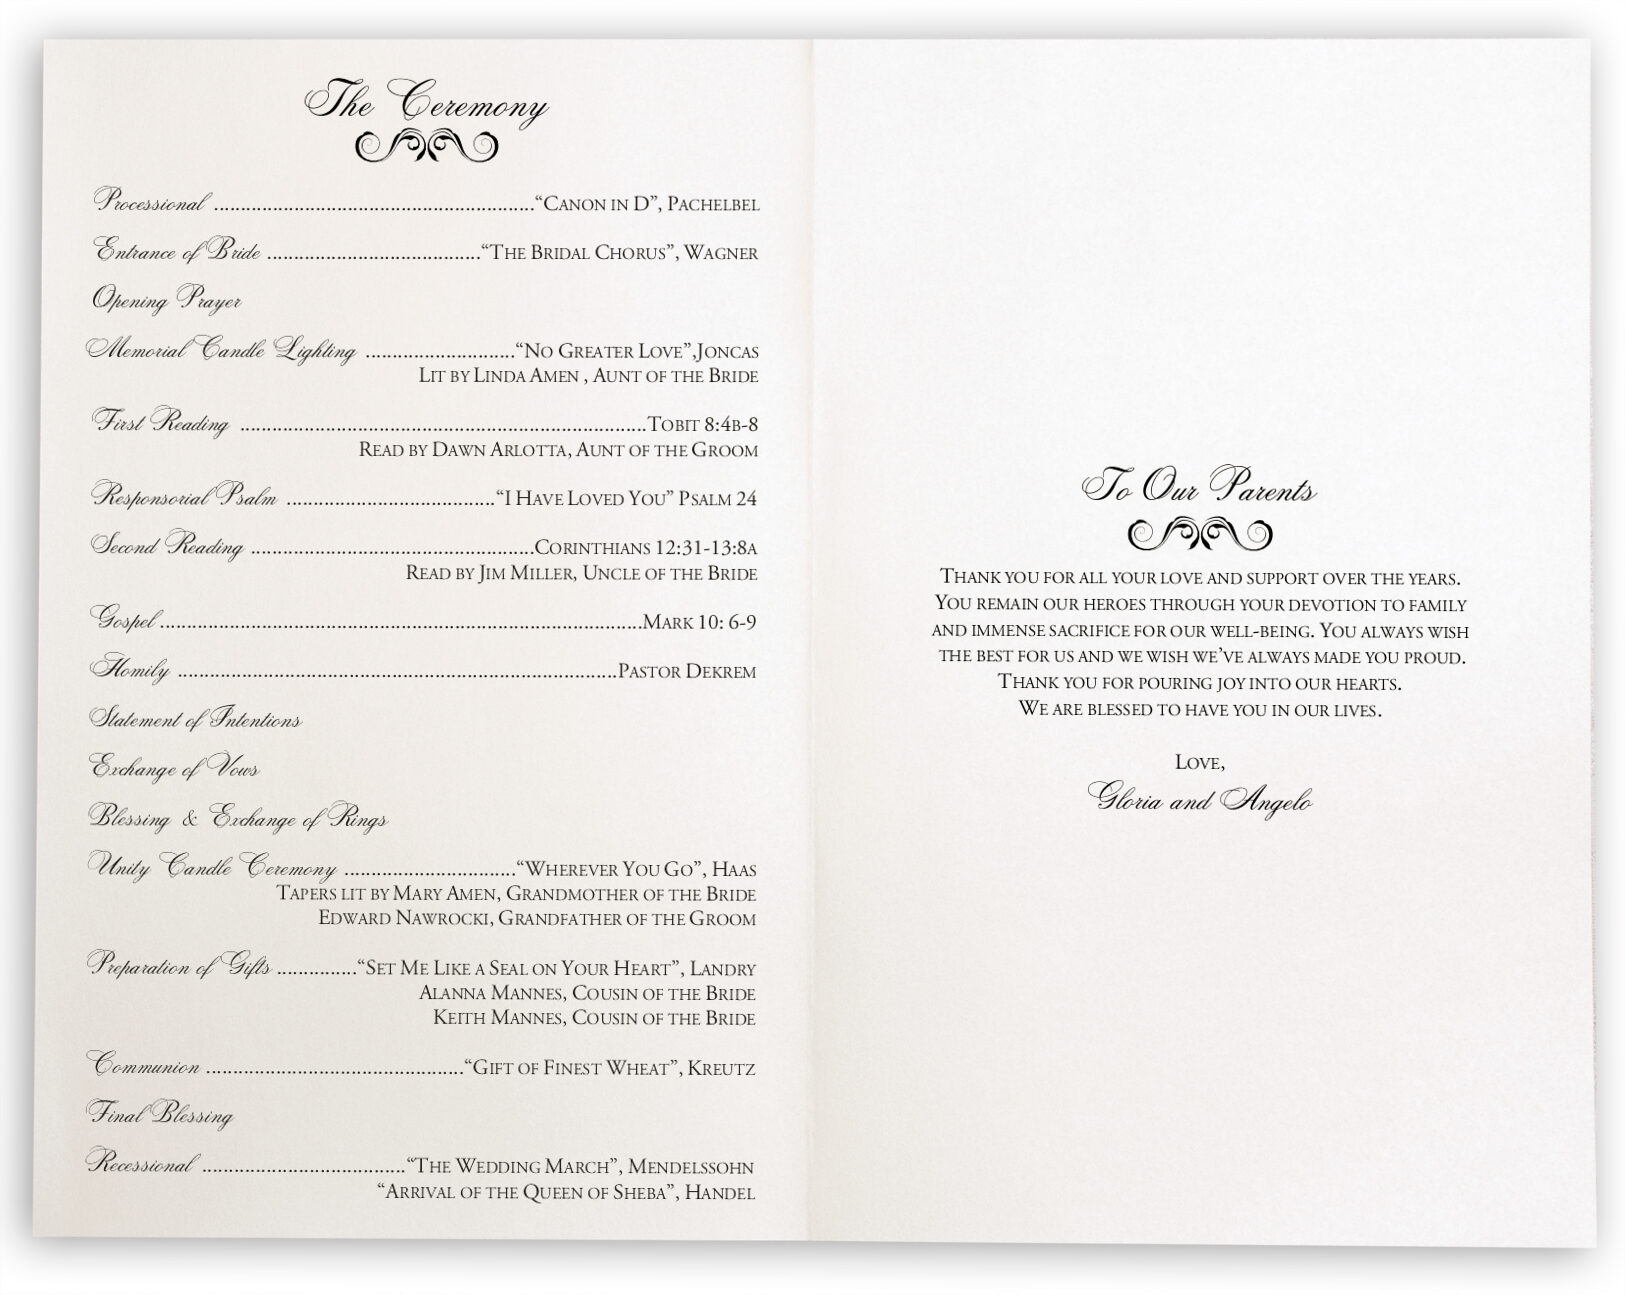 The Ceremony
Processional ............................................................“Canon in D”, Pachelbel
Entrance of Bride ........................................“The Bridal Chorus”, Wagner
Opening Prayer
Memorial Candle Lighting ............................“No Greater Love”,Joncas
Lit by Linda Amen , Aunt of the Bride
First Reading ............................................................................Tobit 8:4b-8
Read by Dawn Arlotta, Aunt of the Groom
Responsorial Psalm .......................................“I Have Loved You” Psalm 24
Second Reading .....................................................Corinthians 12:31-13:8a
Read by Jim Miller, Uncle of the Bride
Gospel ..........................................................................................Mark 10: 6-9
Homily ..................................................................................Pastor Dekrem
Statement of Intentions
Exchange of Vows
Blessing & Exchange of Rings
Unity Candle Ceremony ................................“Wherever You Go”, Haas
Tapers lit by Mary Amen, Grandmother of the Bride
Edward Nawrocki, Grandfather of the Groom
Preparation of Gifts ...............“Set Me Like a Seal on Your Heart”, Landry
Alanna Mannes, Cousin of the Bride
Keith Mannes, Cousin of the Bride
Communion ................................................“Gift of Finest Wheat”, Kreutz
Final Blessing
Recessional ......................................“The Wedding March”, Mendelssohn
“Arrival of the Queen of Sheba”, Handel
To Our Parents
Thank you for all your love and support over the years.
You remain our heroes through your devotion to family
and immense sacrifice for our well-being. You always wish
the best for us and we wish we’ve always made you proud.
Thank you for pouring joy into our hearts.
We are blessed to have you in our lives.
Love,
Gloria and Angelo